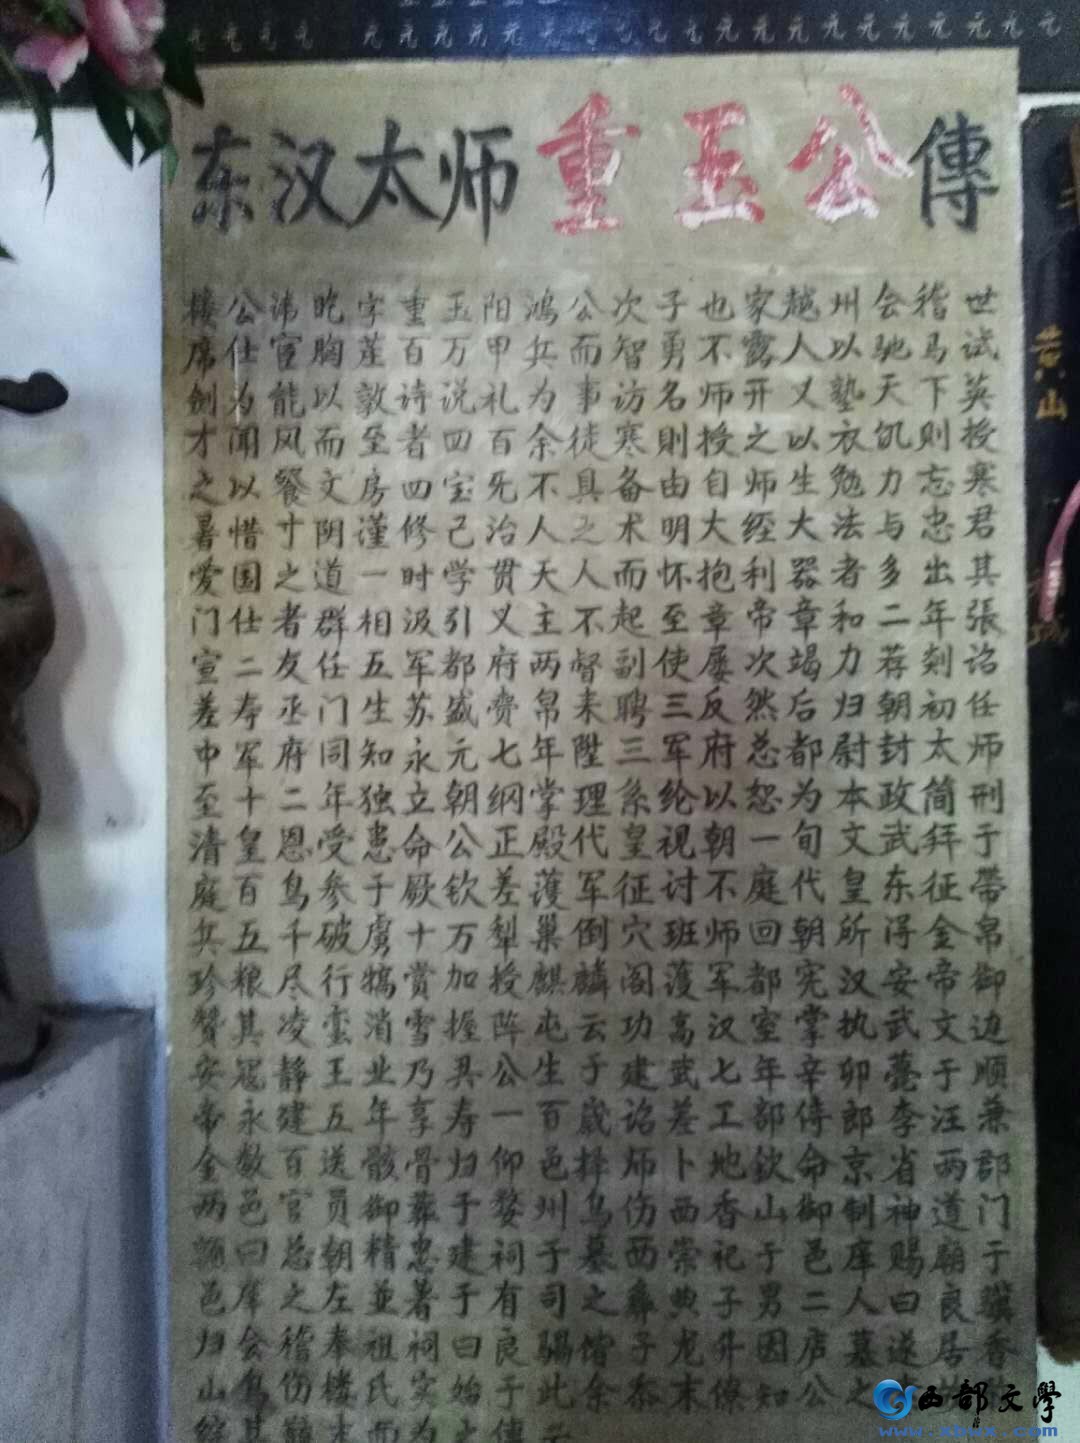 元元元元元元元元元元元元元元元元元
东汉太师重玉公傳
楼公讳昫字重玉阳鸿公次子也家越州会稽世
席仕宦胸茬百万甲兵而智勇不露人以驰马试
剑为能以敦诗说礼为事访名师开义塾天下英
才闻风而至者四百余徒寒則授之以衣饥则授
之以餐文房四宝死不具备由自师生勉力忘寒
暑惜寸阴谨修己治人之术明大经大法与忠君
爱国之道一时学贯天人而怀抱利器者多出其
门仕者群相汲引义主不起至章帝章和二年張
宣二友任五军都府两督副使屡次竭力荐剡诏
差寿丞门生苏盛赍帛来聘三反然后归朝初任
中军府同知永元七年陞三军府总都尉封太师
至十二年独立朝纲掌理系纶以恕为本政简刑
清皇恩受患命公正殿代皇视朝一旬文武拜于
庭百鸟参于厥钦差護军征讨不庭代皇东征帶
兵五千破虜十万犁巢倒穴班师回朝所得金帛
珍粮尽行犒赏加授麒麟阁護军都宪汉安帝御
赞其凌蛮消雪握阵屯云功高汉室掌执武文边
安冦静王业乃具公生于建武七年辛卯薨于顺
帝永建五年享寿一百歲诏差工部侍郎李汪兼
金数百送骸骨归仰邑择师卜地欽命京省两郡
两邑官员御葬于婺州乌伤西香山御制神道门
额曰总朝精忠建祠于墓西崇祀于邑庠赐廟于
邑庠之左並著于有司之彝典子男二人曰良驥
归会稽奉祖祠曰良騸偕子龙升因庐墓遂居香
山乌伤楼氏实始于此余忝末僚知公之
黄山
西部文学